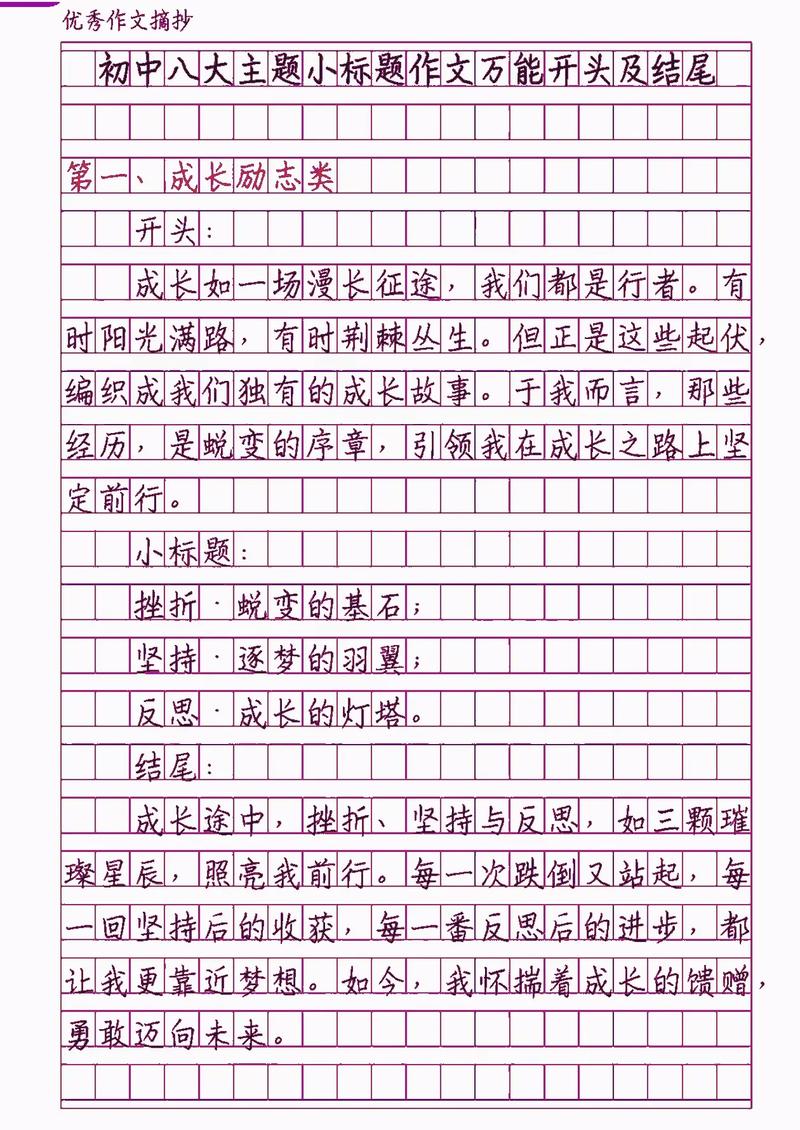 优秀作文摘抄
初中八大主题小标题作文万能开头及结尾
第一、成长励志类
开头：
成长如一场漫长征途，我们都是行者。有
时阳光满路，有时荆棘丛生。但正是这些起伏，
编织成我们独有的成长故事。于我而言，那些
经历，是蜕变的序章，引领我在成长之路上坚
定前行。
小标题：
挫折·蜕变的基石；
坚持·逐梦的羽翼；
反思·成长的灯塔。
结尾：
成长途中，挫折、坚持与反思，如三颗璀
璨星辰，照亮我前行。每一次跌倒又站起，每
一回坚持后的收获，每一番反思后的进步，都
让我更靠近梦想。如今，我怀揣着成长的馈赠，
勇敢迈向未来。